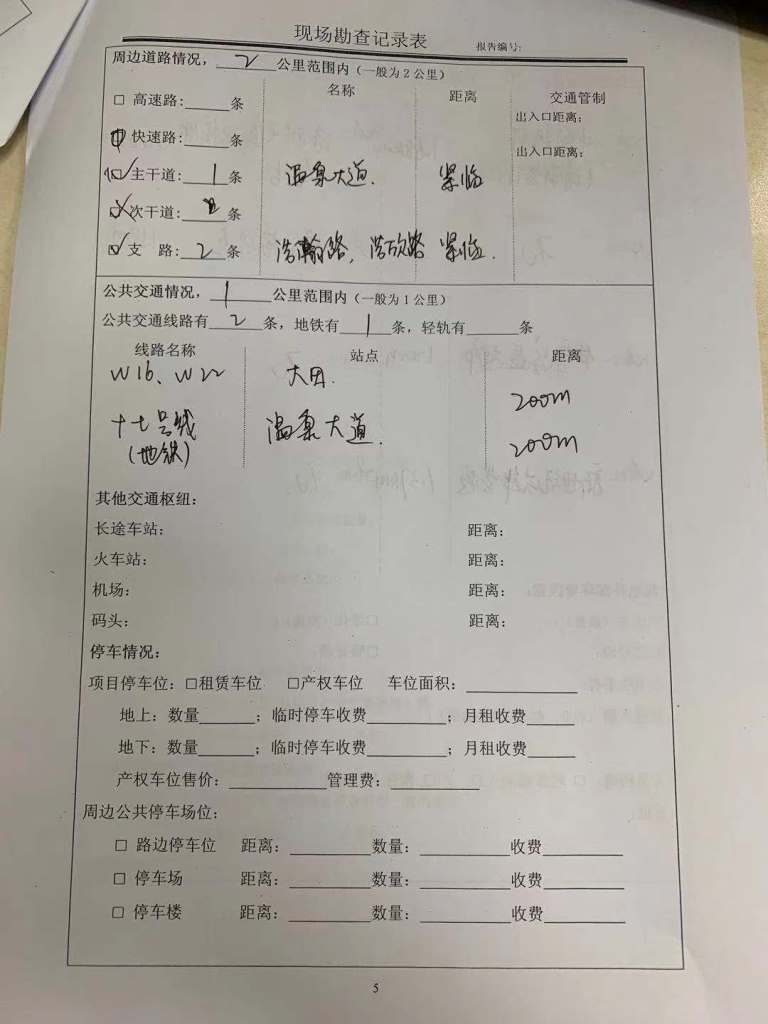 现场勘查记录表
报告编号:
周边道路情况，2公里范围内（一般为2公里）
名称 距离 交通管制
□ 高速路:____条 出入口距离:
□ 快速路:____条 出入口距离:
☑ 主干道: 1 条 温泉大道. 紧临
次干道: 条
☑ 支 路: 2 条 浩瀚路，浩欣路 紧临.
公共交通情况，1公里范围内（一般为1公里）
公共交通线路有 2 条，地铁有 1 条，轻轨有____条
线路名称 站点 距离
W16、W22 大田. 200m
十七号线 温泉大道. 200m
(地铁)
其他交通枢纽:
长途车站: 距离:
火车站: 距离:
机场: 距离:
码头: 距离:
停车情况:
项目停车位: □租赁车位 □产权车位 车位面积:________
地上: 数量____; 临时停车收费______; 月租收费____
地下: 数量____; 临时停车收费______; 月租收费____
产权车位售价:______管理费:______
周边公共停车场位:
□ 路边停车位 距离:______数量:______收费______
□ 停车场 距离:______数量:______收费______
□ 停车楼 距离:______数量:______收费______
5